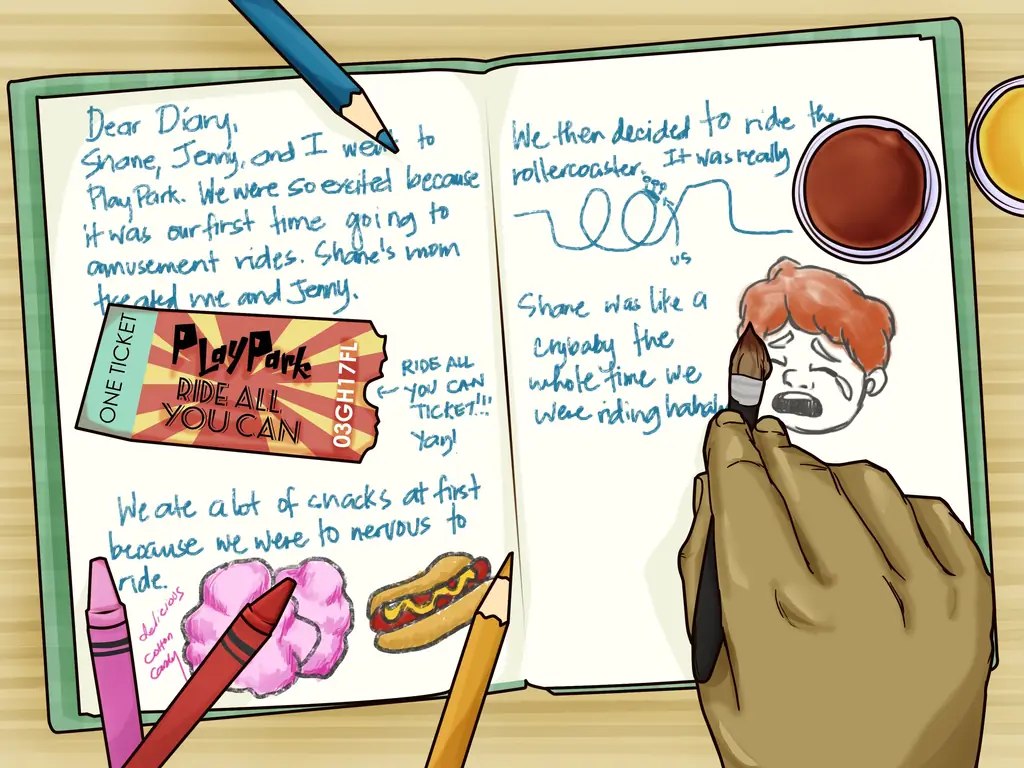 Dear Diary,
Shane, Jenny, and I went to
PlayPark. We were so excited because
it was our first time going to
amusement rides. Shane's mom
treated me and Jenny.
ONE TICKET
PLayPark
RIDE ALL
YOU CAN
03GH17FL
← RIDE ALL
YOU CAN
TICKET!!!
Yay!
We ate a lot of snacks at first
because we were to nervous to
ride.
delicious
cotton
candy
We then decided to ride the
rollercoaster. It was really
us
Shane was like a
crybaby the
whole time we
were riding hahah